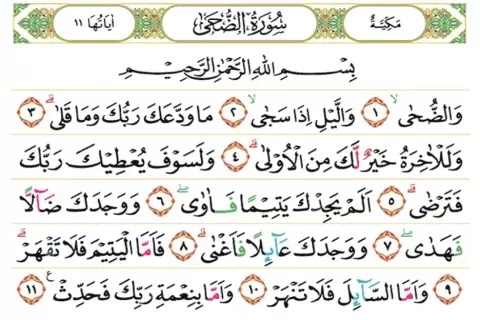 مَكِّيَّةٌ سُورَةُ الضُّحَىٰ اٰيَاتُهَا ١١
بِسْمِ اللهِ الرَّحْمٰنِ الرَّحِيْمِ
وَالضُّحٰىۙ ١ وَالَّيْلِ اِذَا سَجٰىۙ ٢ مَا وَدَّعَكَ رَبُّكَ وَمَا قَلٰىۗ ٣
وَلَلْاٰخِرَةُ خَيْرٌ لَّكَ مِنَ الْاُوْلٰىۗ ٤ وَلَسَوْفَ يُعْطِيْكَ رَبُّكَ
فَتَرْضٰىۗ ٥ اَلَمْ يَجِدْكَ يَتِيْمًا فَاٰوٰىۖ ٦ وَوَجَدَكَ ضَاۤلًّا
فَهَدٰىۖ ٧ وَوَجَدَكَ عَاۤىِٕلًا فَاَغْنٰىۗ ٨ فَاَمَّا الْيَتِيْمَ فَلَا تَقْهَرْۗ
٩ وَاَمَّا السَّاۤىِٕلَ فَلَا تَنْهَرْ ١٠ وَاَمَّا بِنِعْمَةِ رَبِّكَ فَحَدِّثْ ࣖ ١١